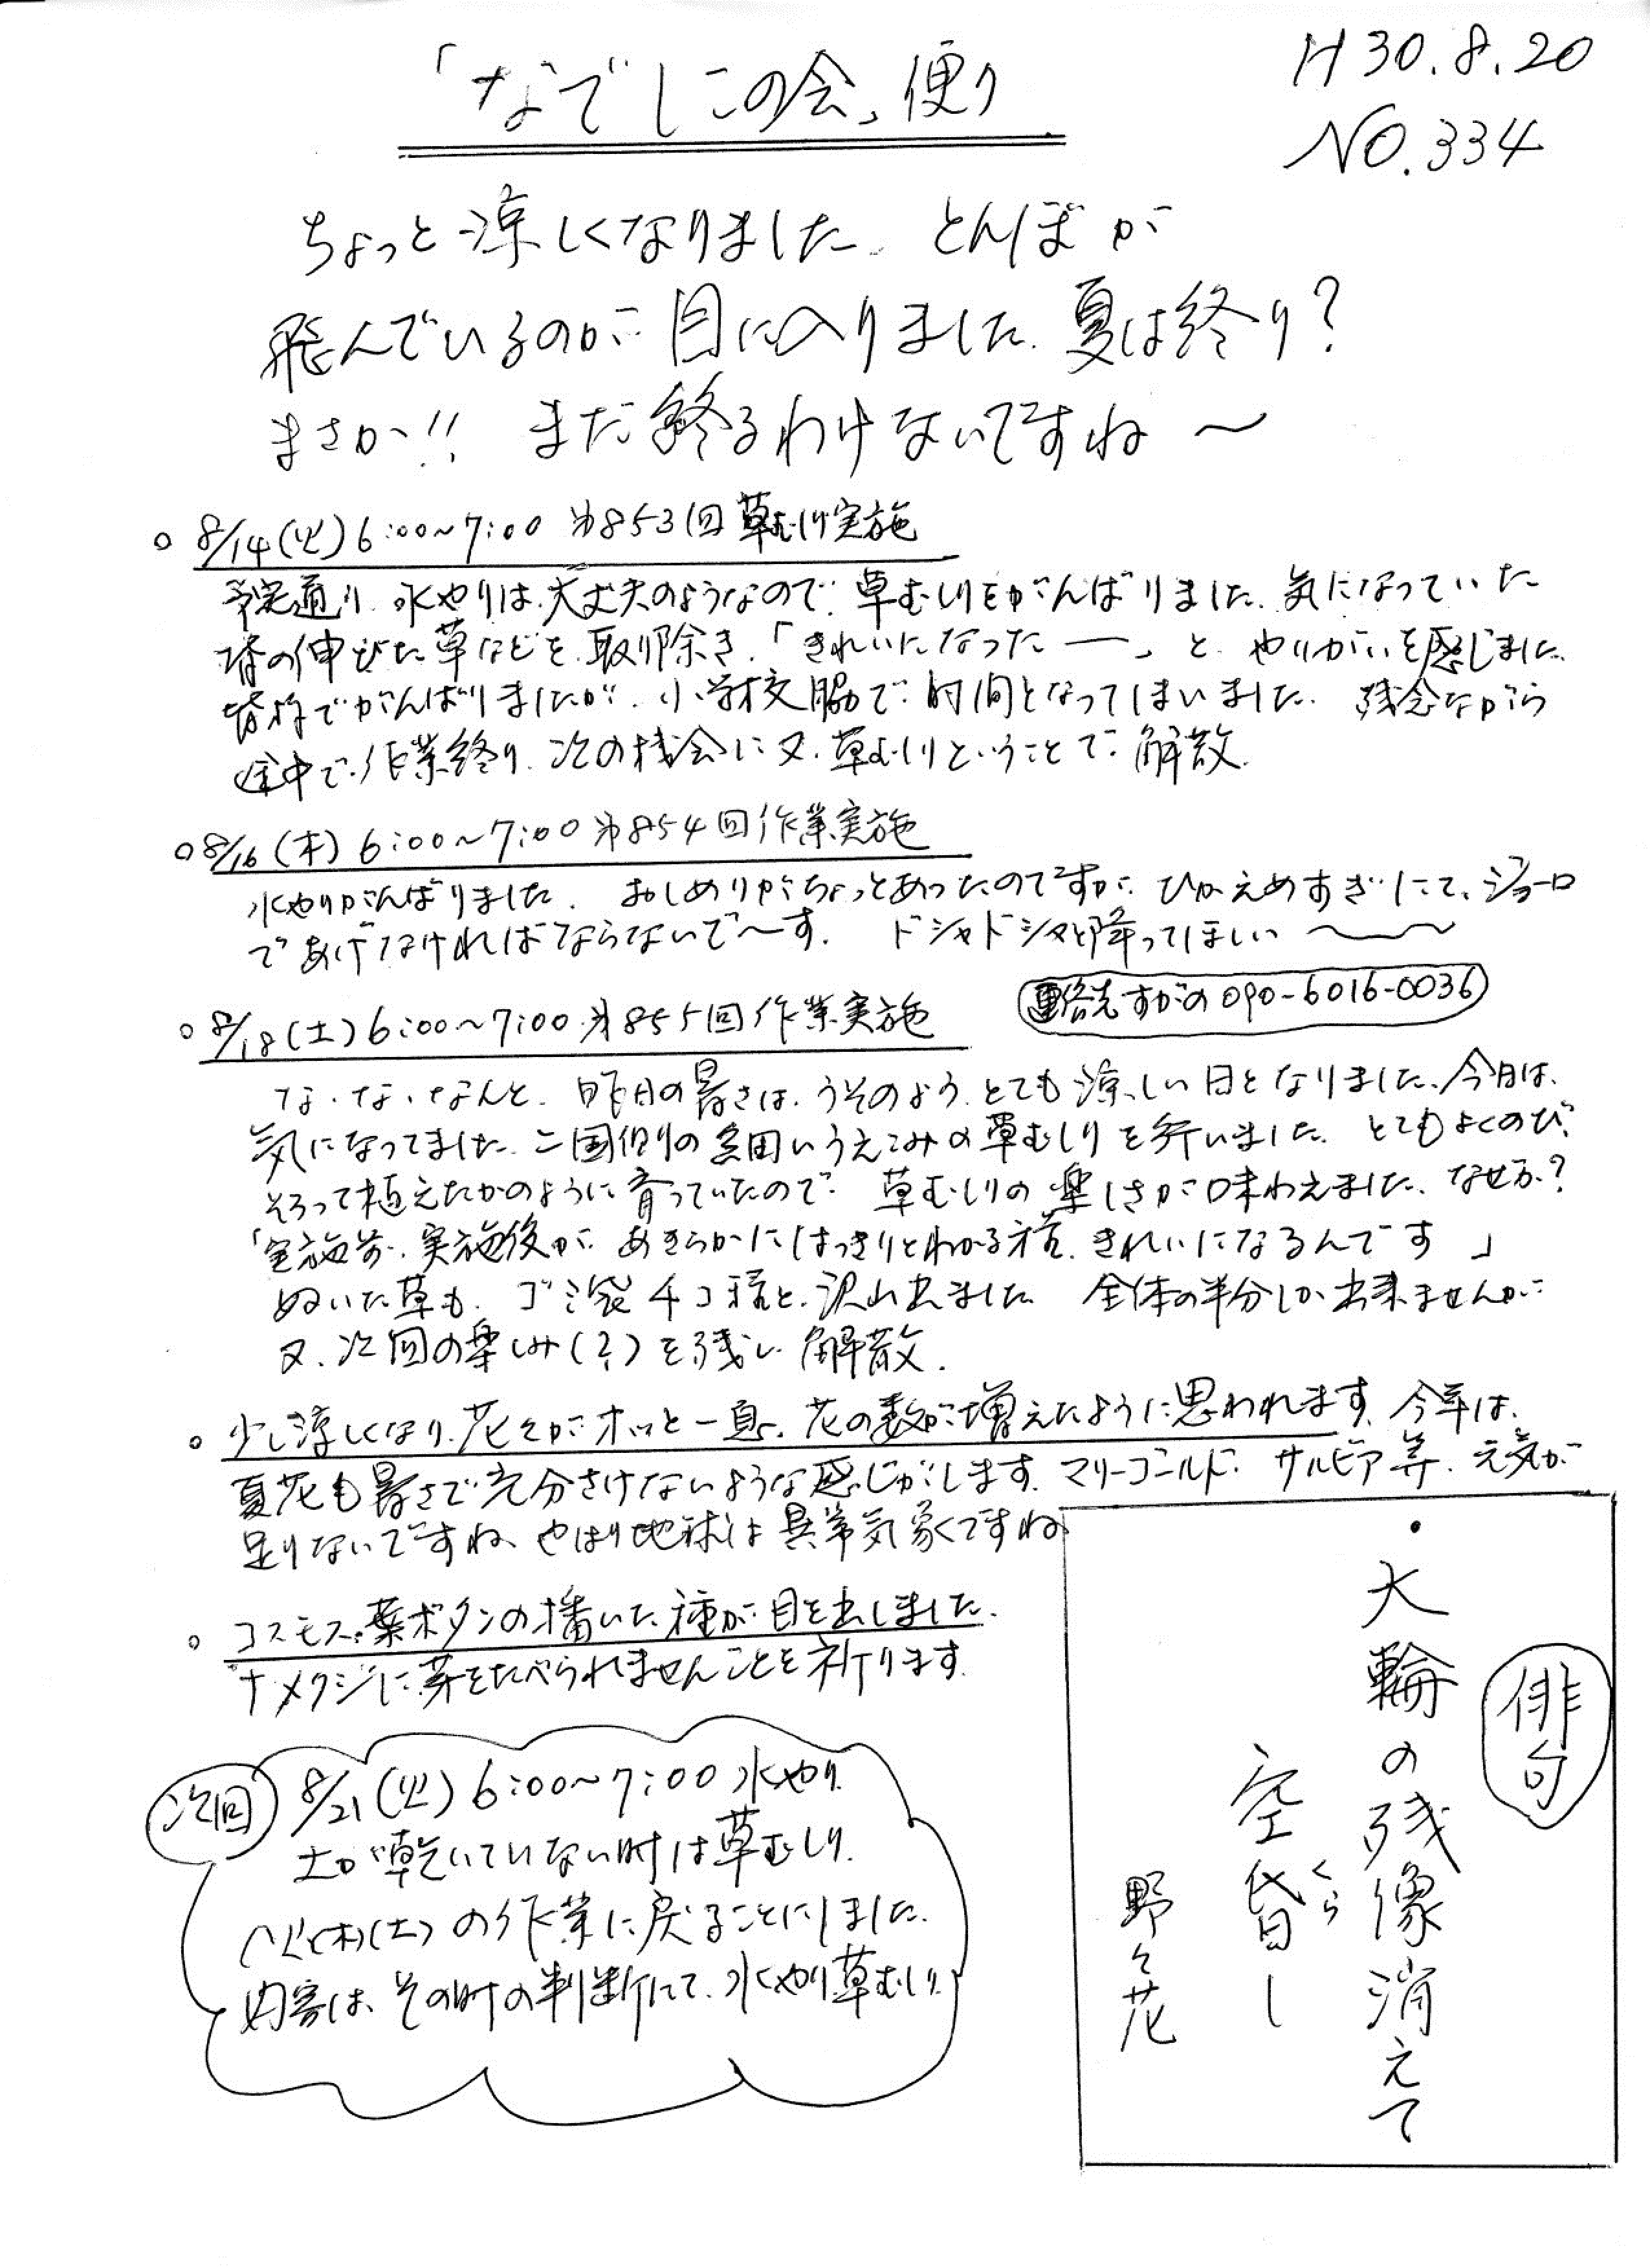 「なでしこの会」便り
H30.8.20
NO.334
ちょっと涼しくなりました。とんぼが
飛んでいるのが目に入りました。夏は終り?
まさか!! まだ終るわけないですね〜
○ 8/14(火)6:00~7:00 第853回草むしり実施
予定通り、水やりは、大丈夫のようなので、草むしりをがんばりました。気になっていた
背の伸びた草などを取り除き、「きれいになったー」と、やりがいを感じました。
皆様でがんばりましたが、小学校脇で時間となってしまいました。残念ながら
途中で作業終り、次の機会に又、草むしりということで解散。
○ 8/16(木)6:00~7:00 第854回作業実施
水やりがんばりました。おしめりがちょっとあったのですが、ひかえめすぎにて、ジョーロ
であげなければならないで〜す。ドシャドシャと降ってほしい〜〜
連絡先すがの090-6016-0036
○ 8/18(土)6:00~7:00 第855回作業実施
な、な、なんと、昨日の暑さは、うそのよう、とても涼しい日となりました。今日は、
気になってました、二国側の細いうえこみの草むしりを行いました。とてもよくのび、
そろって植えたかのように育っていたので、草むしりの楽しさが味わえました。なぜか?
「実施前、実施後が、あきらかにはっきりとわかる程、きれいになるんです」
ぬいた草も、ゴミ袋4コ程と、沢山出ました。全体の半分しか出来ませんが
又、次回の楽しみ(?)を残し、解散。
○ 少し涼しくなり、花々がホッと一息。花の数が増えたように思われます。今年は、
夏花も暑さで充分さけないような感じがします。マリーゴールド、サルビア等、元気が
足りないですね。やはり地球は異常気象ですね。
○ コスモス、葉ボタンの播いた種が目を出しました。
ナメクジに芽をたべられませんことを祈ります。
次回
8/21(火)6:00~7:00水やり
土が乾いていない時は草むしり。
(木)(土)の作業に戻ることにしました。
内容は、その時の判断にて、水やり草むしり
俳句
・大輪の残像消えて
空昏し
くら
野々花